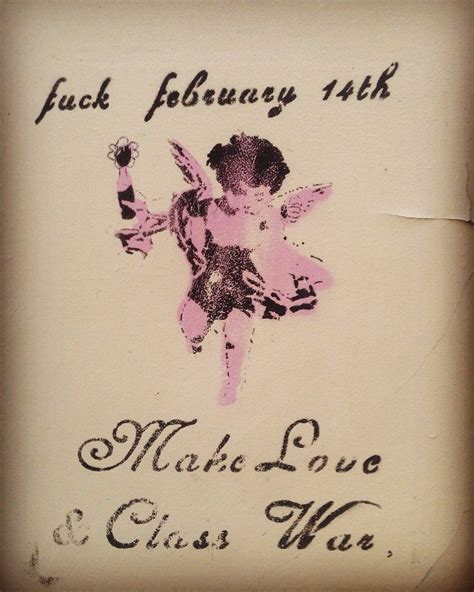 fuck february 14th
Make Love
& Class War.